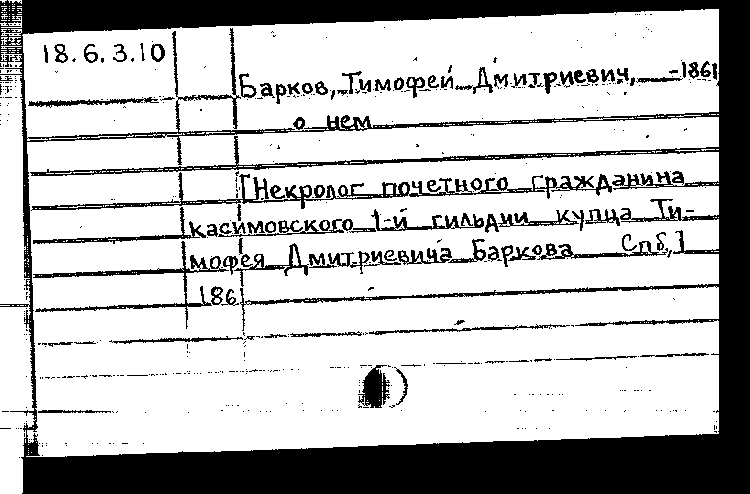 18.6.3.10
Барков, Тимофей Дмитриевич, -1861
о нем
[Некролог почетного гражданина
касимовского 1-й гильдии купца Ти-
мофея Дмитриевича Баркова Спб,]
1861